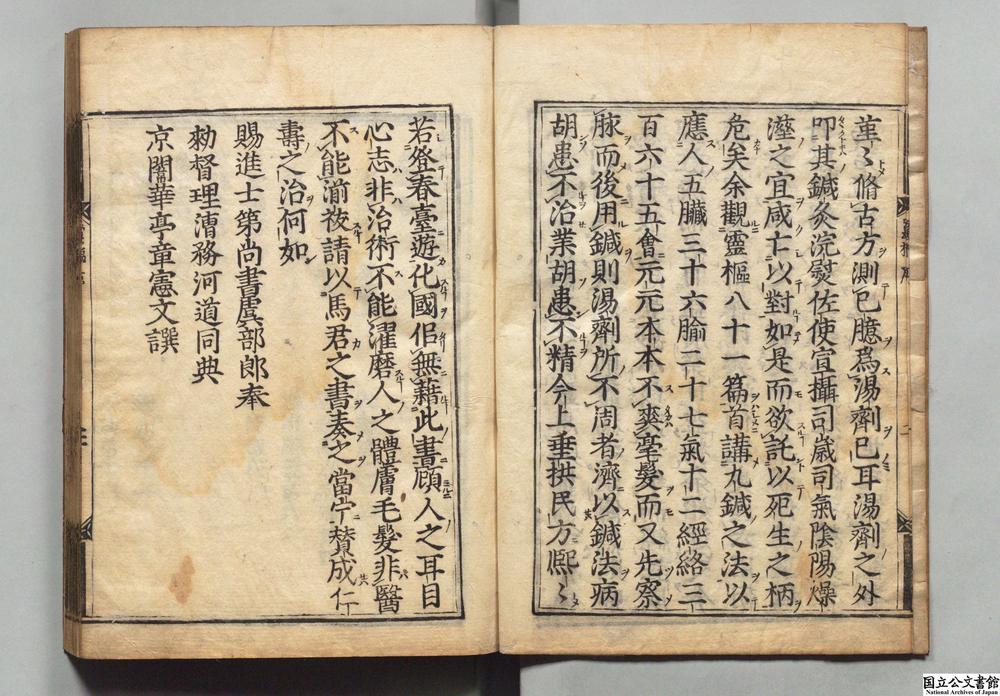 革〻脩古方測已臆爲湯劑已耳湯劑之外
叩其鍼灸浣熨佐使宣攝司嵗司氣陰陽燥
溼之宜咸亡以對如是而欲託以死生之柄
危矣余觀靈樞八十一篇首講九鍼之法以
應人五臟三十六腧二十七氣十二經絡三
百六十五會元元本本不爽毫髮而又先察
脉而後用鍼則湯劑所不周者濟以鍼法病
胡患不治業胡患不精今上垂拱民方熈〻
若登春臺遊化國佀無藉此書顧人之耳目
心志非治術不能濯磨人之體膚毛髮非醫
不能湔祓請以馬君之書奏之當宁賛成仁
壽之治何如
賜進士第尚書虞部郎奉
勑督理漕務河道同典
京闈華亭章憲文譔
國立公文書館
National Archives of Japan